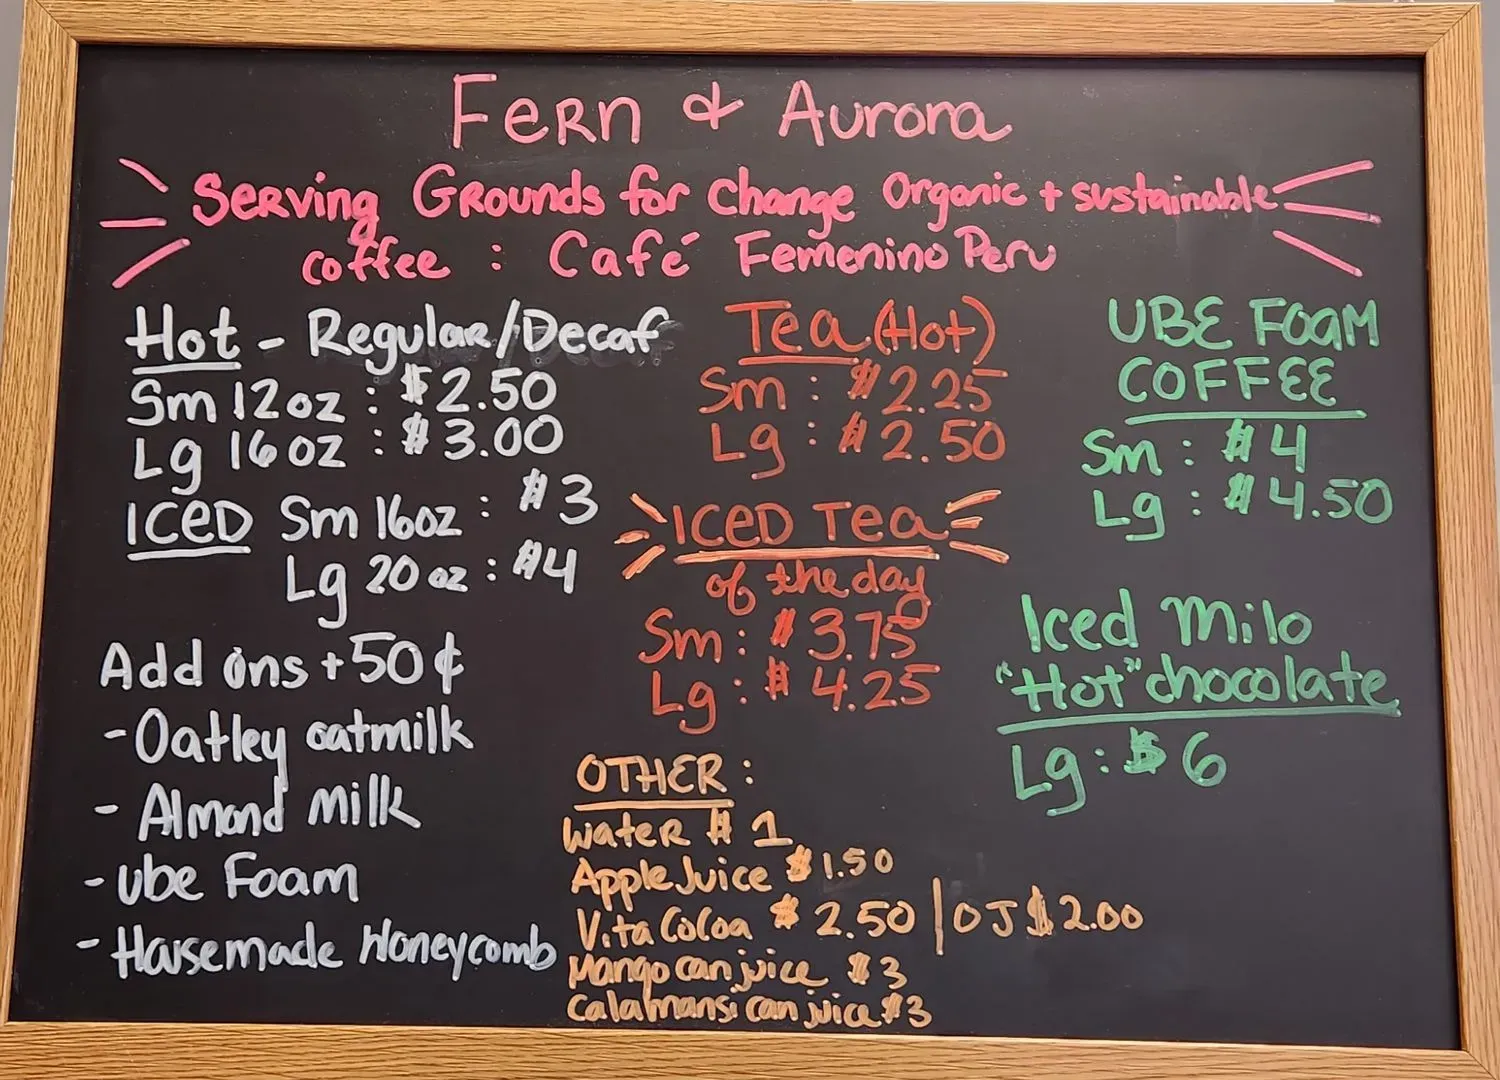 Fern & Aurora
Serving Grounds for Change Organic + sustainable
coffee : Café Femenino Peru
Hot - Regular/Decaf
Sm 12oz : $2.50
Lg 16oz : $3.00
ICED Sm 16oz : $3
Lg 20oz : $4
Add ons +50¢
- Oatley oatmilk
- Almond milk
- ube Foam
- Housemade Honeycomb
Tea (Hot)
Sm : $2.25
Lg : $2.50
ICED Tea
of the day
Sm : $3.75
Lg : $4.25
OTHER :
Water $1
Apple Juice $1.50
Vita Cocoa $2.50 | OJ $2.00
Mango can juice $3
Calamansi can juice $3
UBE FOAM
COFFEE
Sm : $4
Lg : $4.50
Iced Milo
"Hot" chocolate
Lg : $6